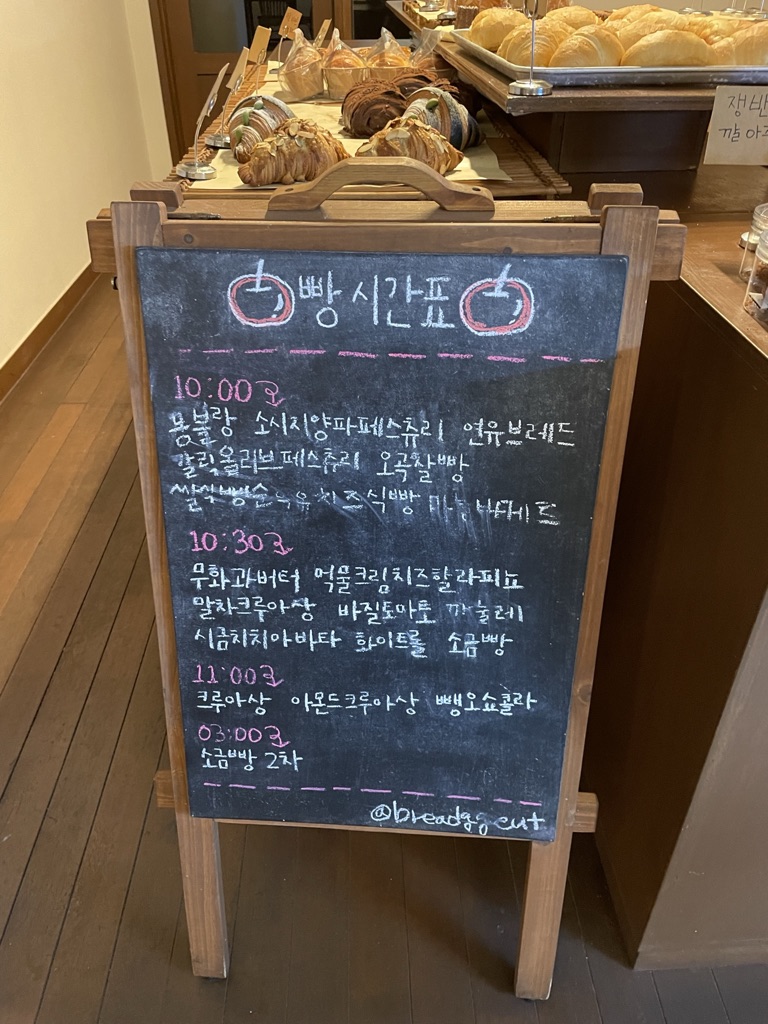 빵 시간표
10:00
몽블랑 소시지양파페스츄리 연유브레드
갈릭올리브페스츄리 오곡찰빵
쌀식빵 우유 치즈식빵
10:30
무화과버터 먹물크림치즈할라피뇨
말차크루아상 바질토마토 까눌레
시금치치아바타 화이트롤 소금빵
11:00
크루아상 아몬드크루아상 뺑오쇼콜라
03:00
소금빵 2차
쟁반